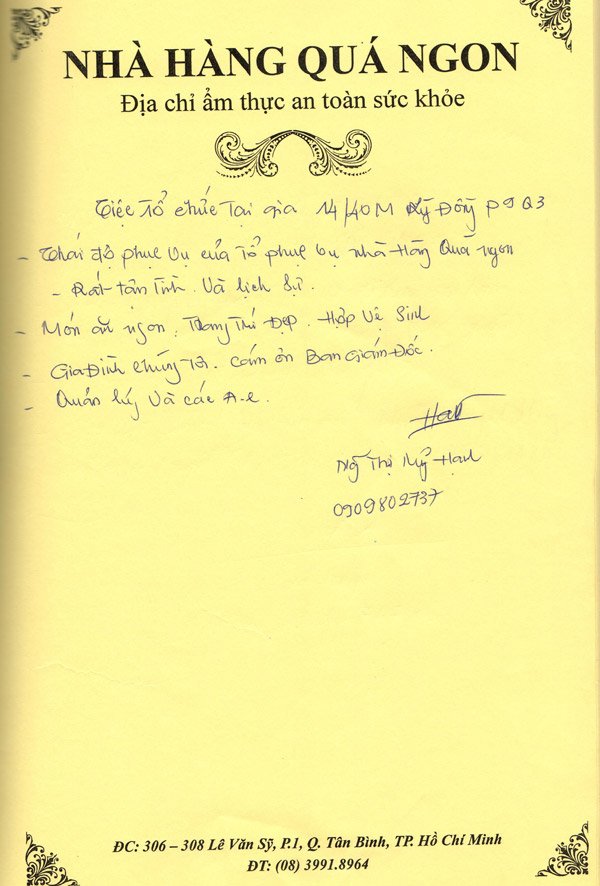 NHÀ HÀNG QUÁ NGON
Địa chỉ ẩm thực an toàn sức khỏe
Tiệc Tổ chức Tại gia 14/40M Kỳ Đồng P9 Q3
- Thái độ phục vụ của Tổ phục vụ nhà Hàng Quá ngon
- Rất tận Tình. Và lịch Sự.
- Món ăn ngon, Trang Trí Đẹp. Hợp Vệ Sinh
- Gia Đình chúng Tôi. Cám ơn Ban Giám Đốc.
- Quản lý Và các A.e.
Hạnh
Ng~ Thị Mỹ Hạnh
0909802737
ĐC: 306 – 308 Lê Văn Sỹ, P.1, Q. Tân Bình, TP. Hồ Chí Minh
ĐT: (08) 3991.8964